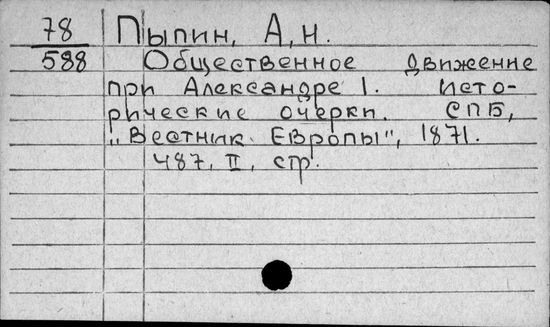 78 Пыпин, А, н.
588 Общественное движение
при Александре 1. Исто-
рические очерки. СПБ,
„Вестник Европы", 1871.
487, II, стр.